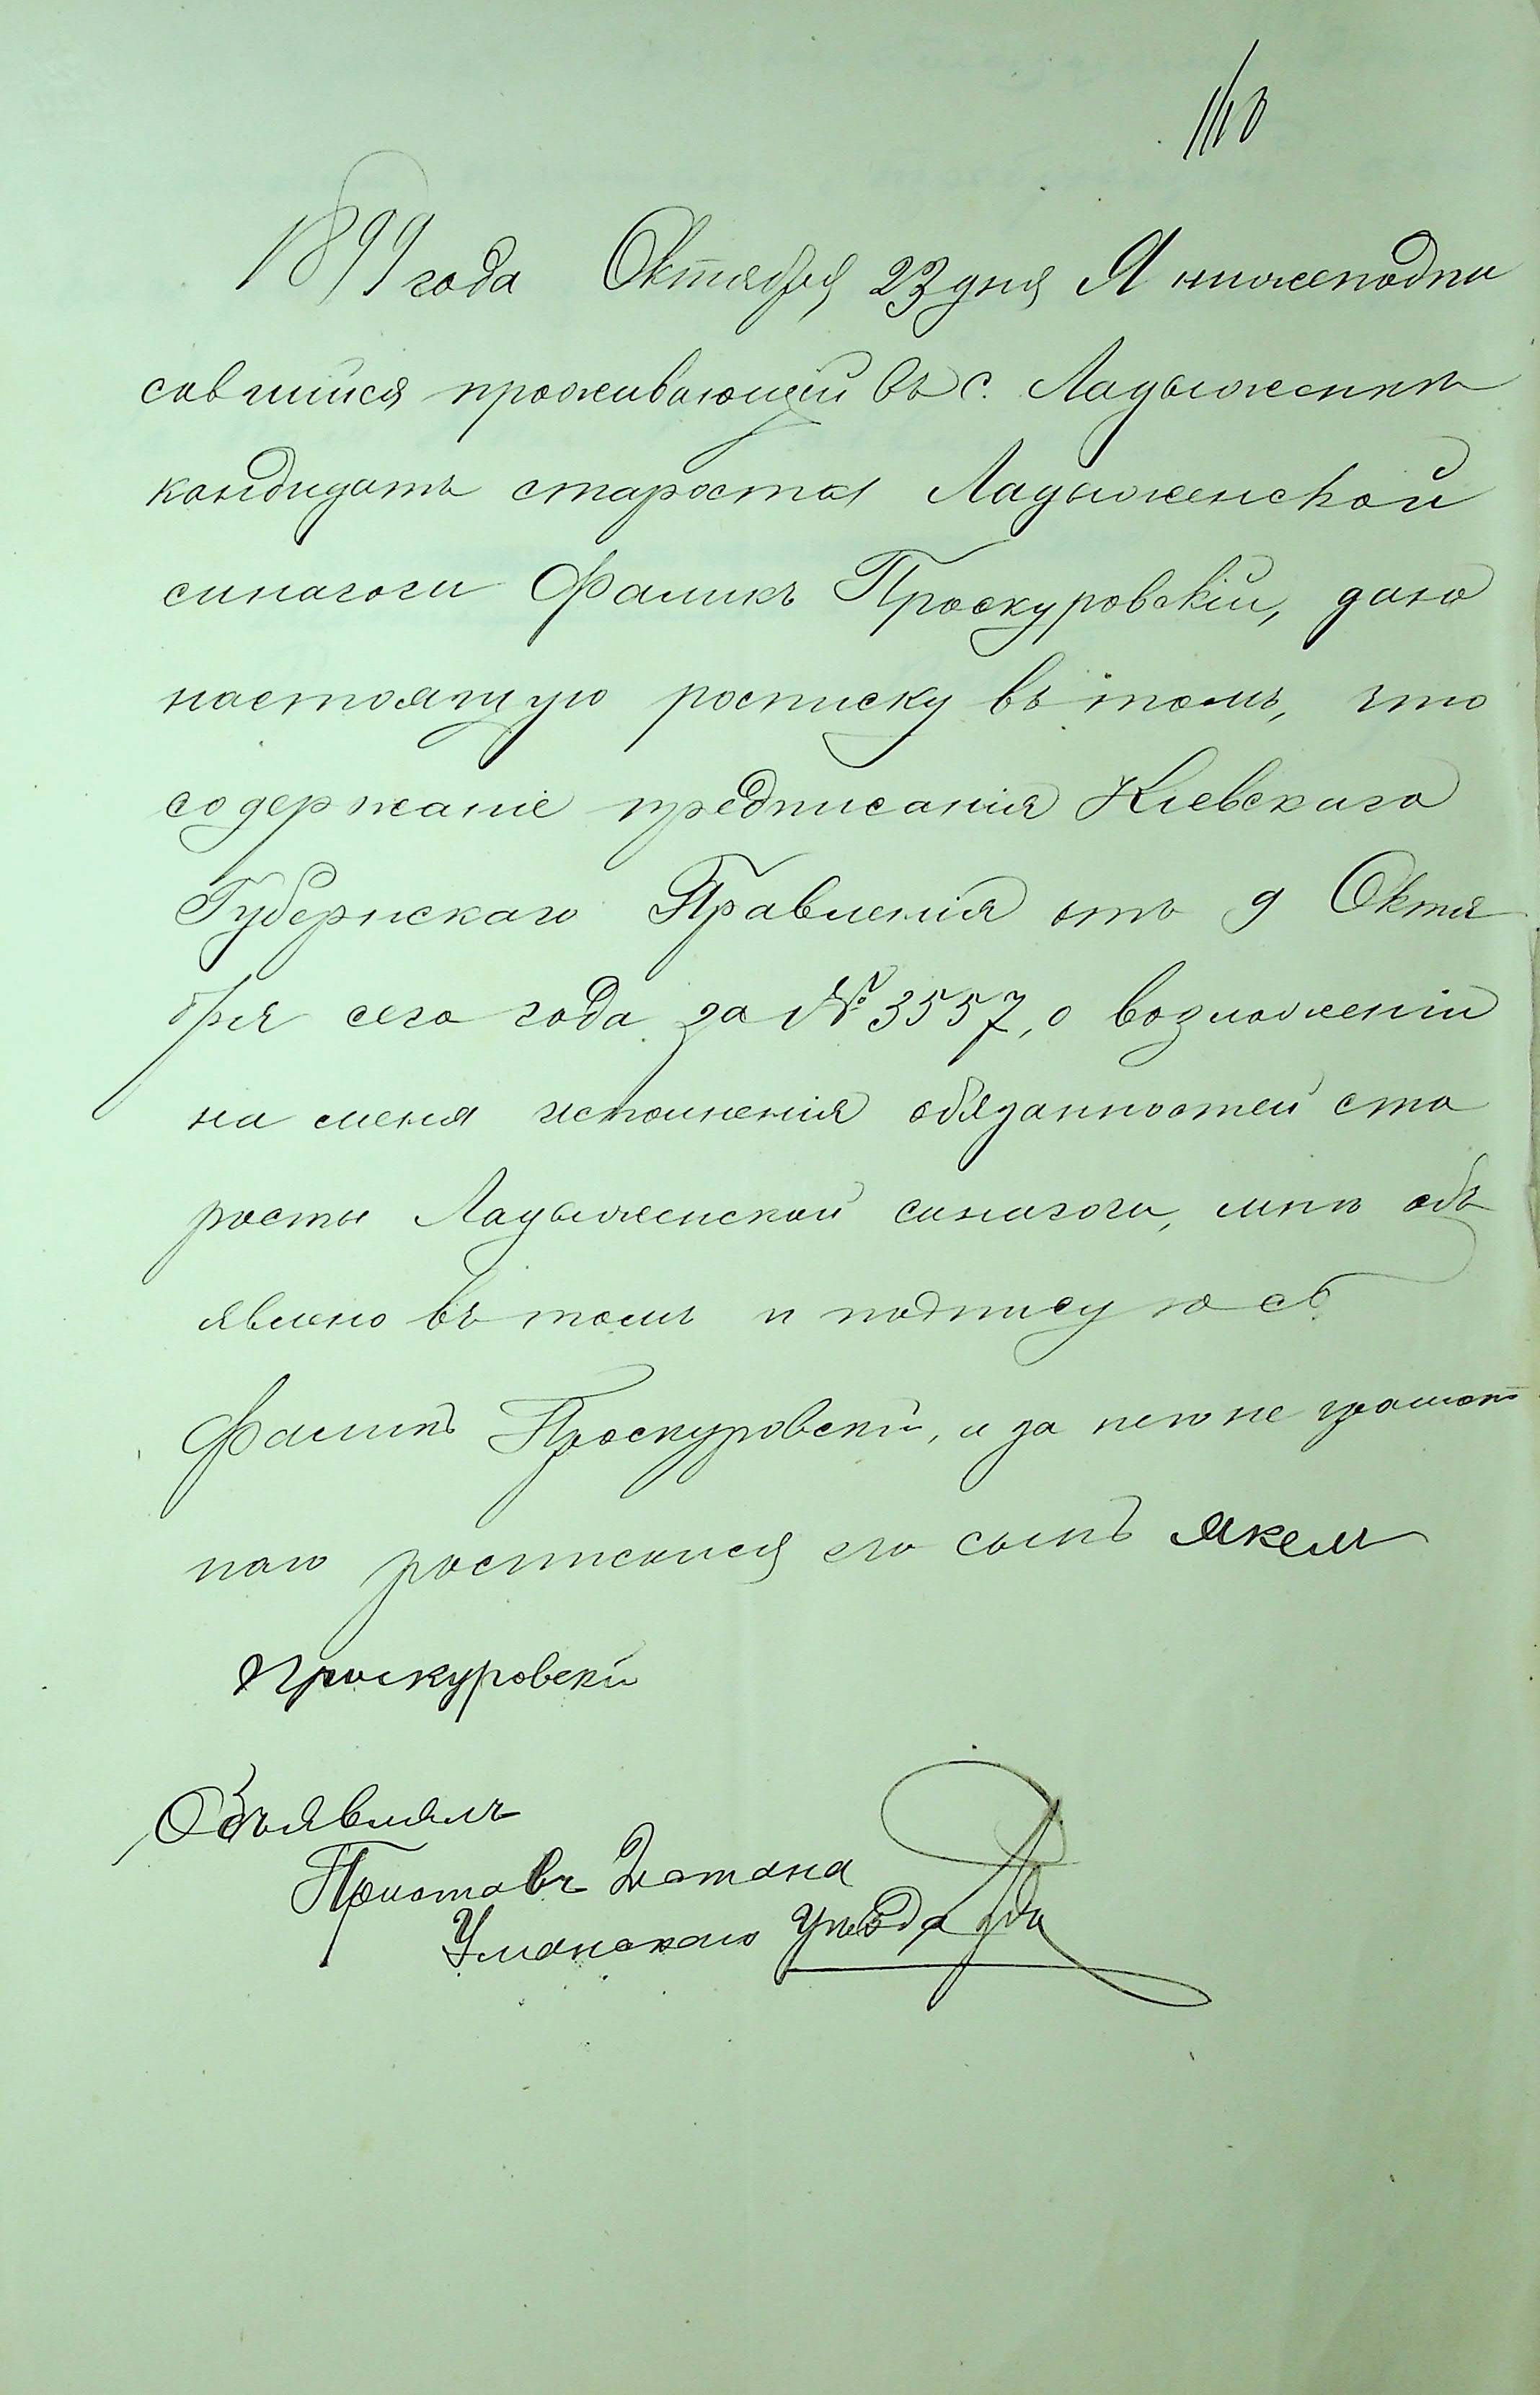 110
1899 года Октября 23 дня Я нижеподпи
савшийся проживающій въ с. Ладыженкѣ
кандидатъ старосты Ладыженской
синагоги Фаликъ Проскуровскій, даю
настоящую росписку въ томъ, что
содержаніе предписанія Кіевскаго
Губернскаго Правленія отъ 9 Октя
бря сего года за № 3557, о возложеніи
на меня исполненія обязанностей ста
росты Ладыженской синагоги, мнѣ объ
явлено въ томъ и подписуюсь
Фаликъ Проскуровскій, а за него не грамот
наго росписался его сынъ Якель
Проскуровскій
Объявлялъ
Приставъ 2 стана
Уманскаго уѣзда